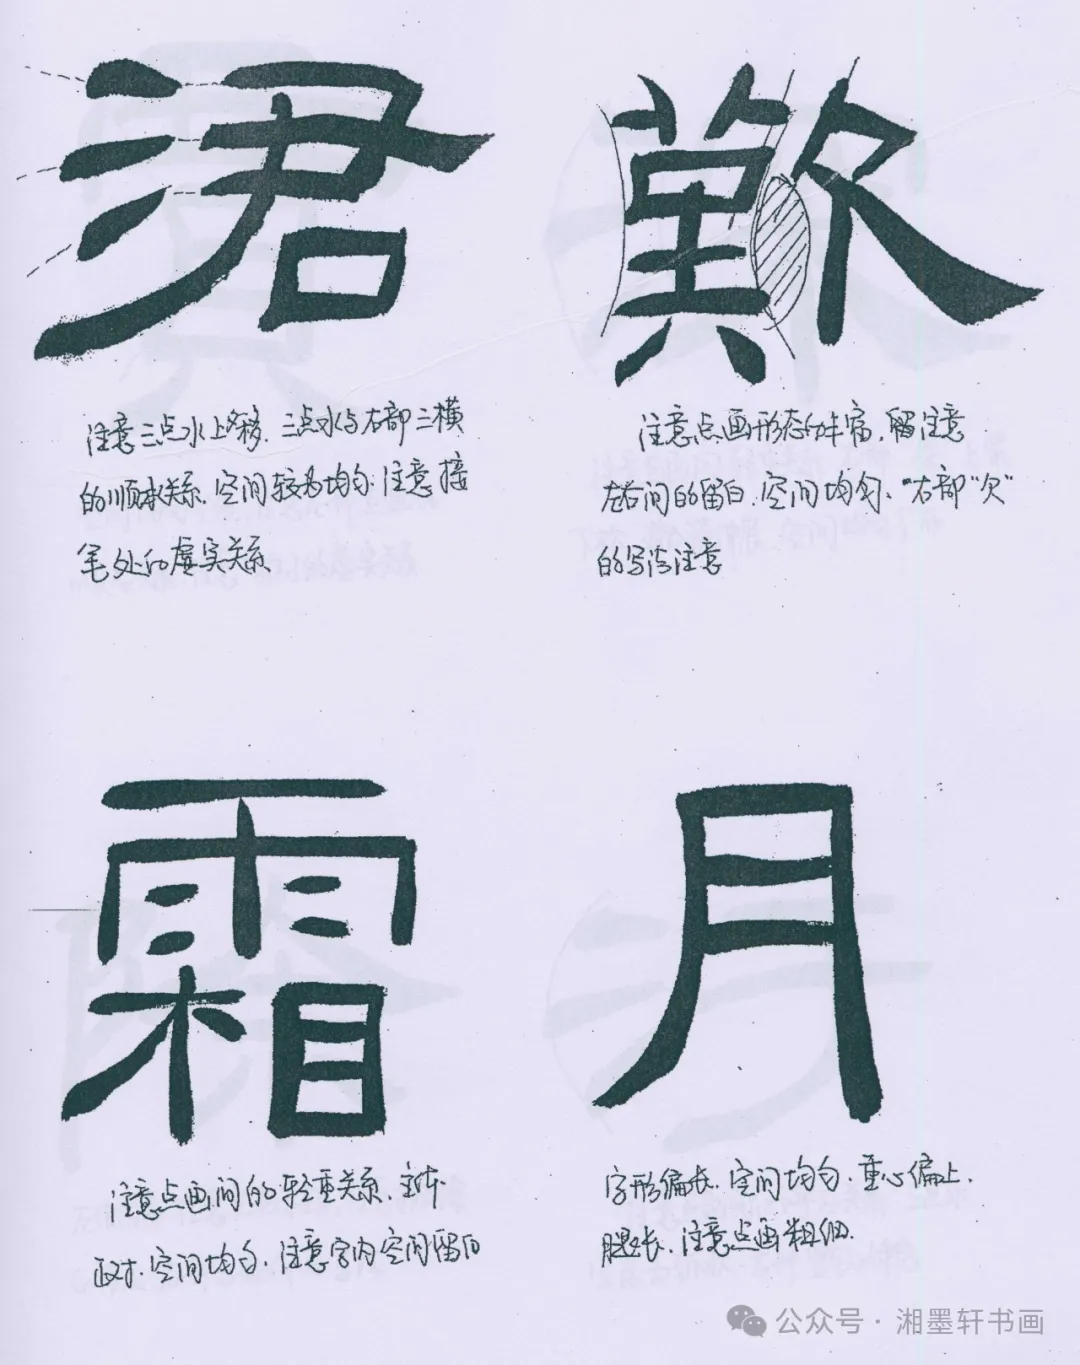 涒
注意三点水上移. 三点水与右部三横
的顺承关系. 空间较为均匀. 注意接
笔处的虚实关系
歎
注意点画形态的丰富. 留注意
左右间的留白. 空间均匀. "右部"欠"
的写法注意
霜
注意点画间的轻重关系. 字体
正方. 空间均匀. 注意字内空间留白
月
字形偏长. 空间均匀. 重心偏上.
腿长. 注意点画粗细.
公众号 · 湘墨轩书画